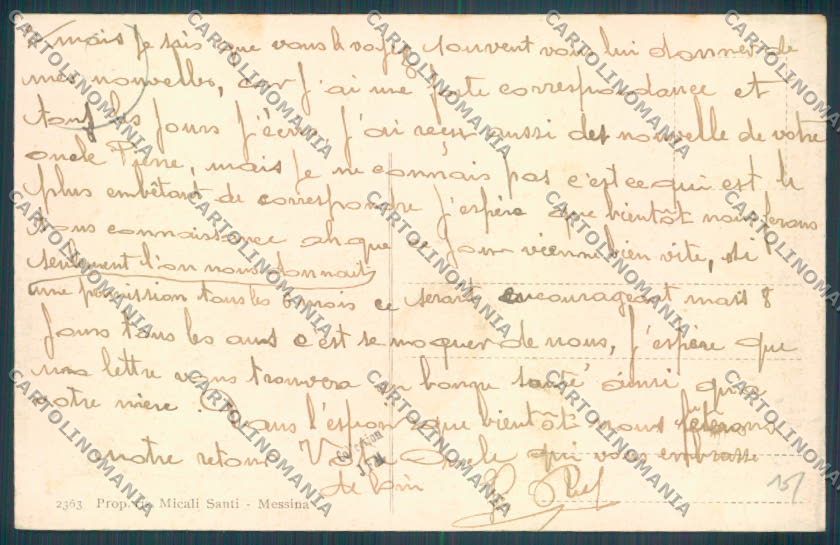 mais je sais que vous le voyez souvent vous lui donner de
mes nouvelles, car j'ai une forte correspondance et
tous les jours j'écris, j'ai reçu aussi des nouvelle de votre
oncle Pierre, mais je ne connais pas c'est ce qui est le
plus embêtant de correspondre j'espère que bientôt nous ferons
tous connaissance ah que ce jour vienne bien vite, si
seulement l'on nous donnait
une permission tous les 6 mois ce serait encourageant mais 8
jours tous les ans c'est se moquer de nous, j'espère que
ma lettre vous trouvera en bonne santé ainsi qu'a
votre mère. Dans l'espoir que bientôt nous fêterons
notre retour Votre oncle qui vous embrasse
de loin
15/
Collection
2363 Prop. da Micali Santi - Messina
CARTOLINOMANIA